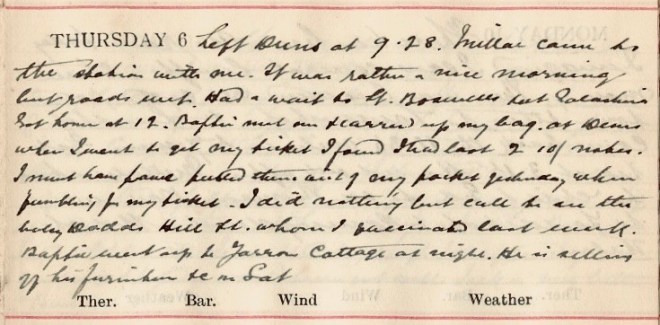 THURSDAY 6 Left Duns at 9.28. Millar came to
the station with me. It was rather a nice morning
but roads wet. Had a wait to St. Boswells but Galashiels
Got home at 12. Baptie met me & carried up my bag. at Duns
when I went to get my ticket I found I had lost 2 10/ notes.
I must have pulled them out of my pocket yesterday when
fumbling for my ticket. I did nothing but call to see the
baby Dodds Hill St. whom I vaccinated last week.
Baptie went up to Yarrow Cottage at night. He is selling
off his furniture &c on Sat
Ther. Bar. Wind Weather